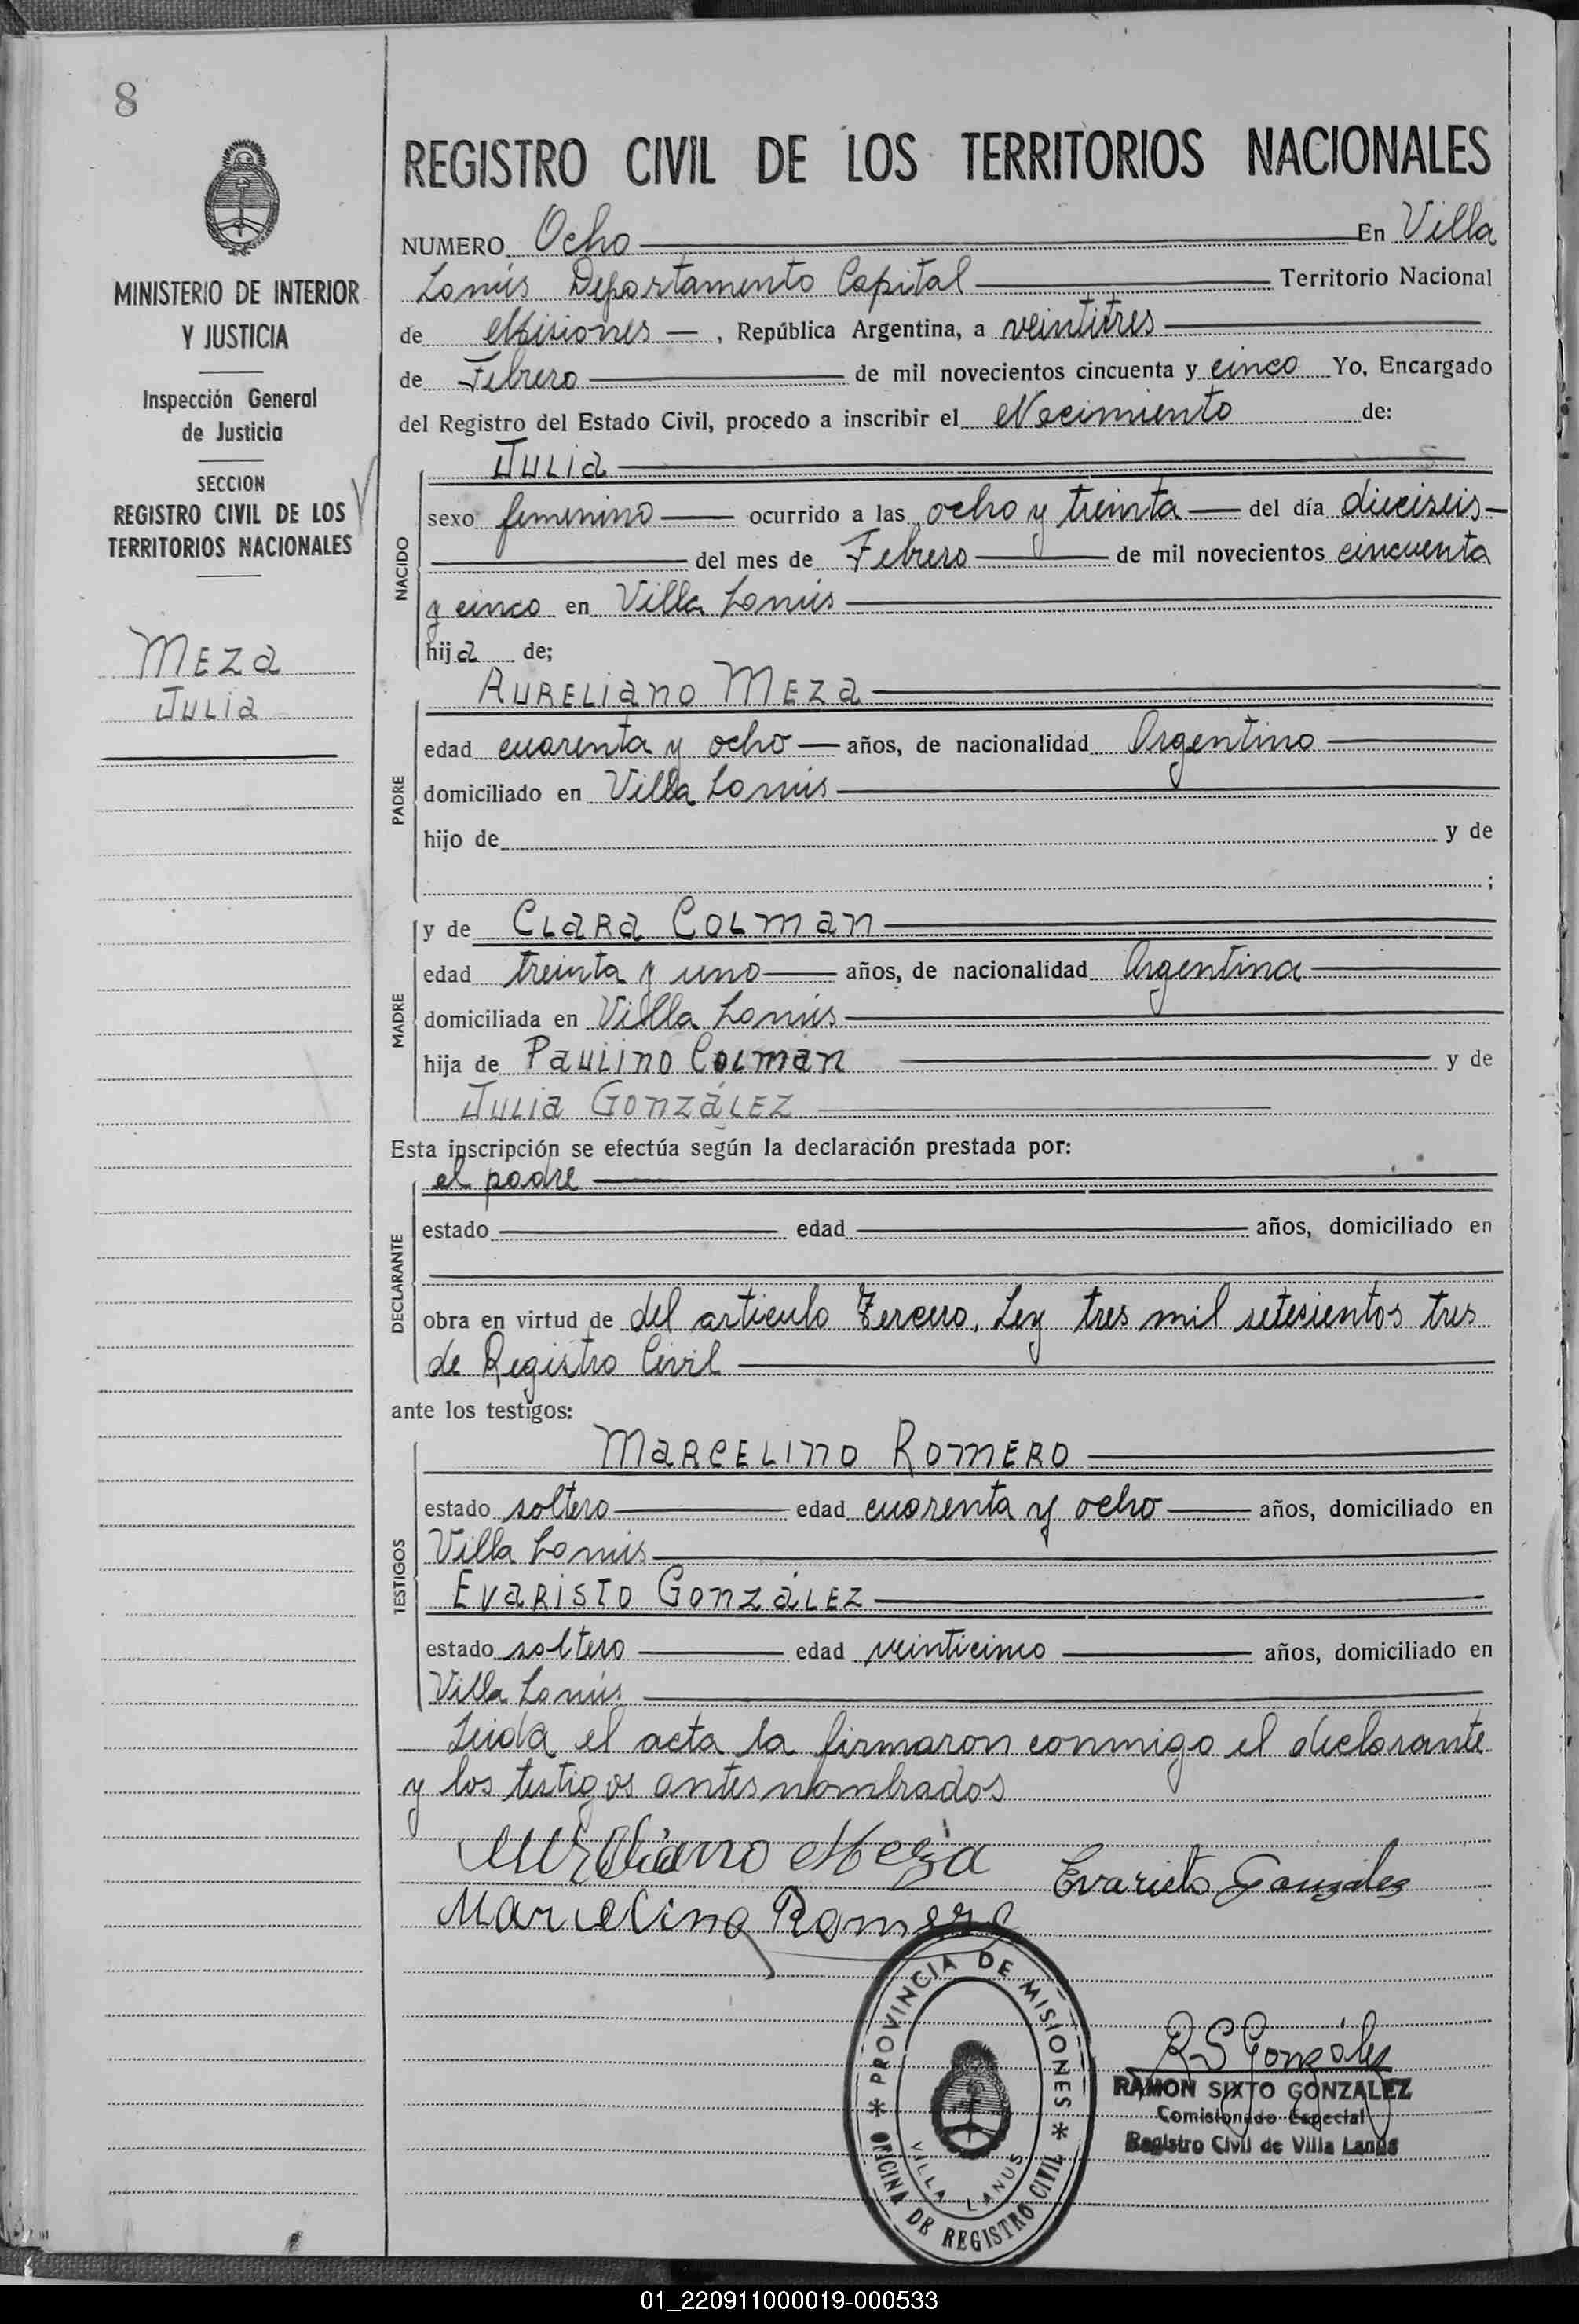 8
MINISTERIO DE INTERIOR
Y JUSTICIA
Inspección General
de Justicia
SECCION
REGISTRO CIVIL DE LOS
TERRITORIOS NACIONALES
Meza
Julia
REGISTRO CIVIL DE LOS TERRITORIOS NACIONALES
NUMERO Ocho En Villa
Lanús Departamento Capital Territorio Nacional
de Misiones, República Argentina, a veintitres
de Febrero de mil novecientos cincuenta y cinco Yo, Encargado
del Registro del Estado Civil, procedo a inscribir el Nacimiento de:
NACIDO
Julia
sexo femenino ocurrido a las ocho y treinta del día dieciseis
del mes de Febrero de mil novecientos cincuenta
y cinco en Villa Lanús
hija de;
PADRE
Aureliano Meza
edad cuarenta y ocho años, de nacionalidad Argentino
domiciliado en Villa Lanús
hijo de y de
;
MADRE
y de Clara Colman
edad treinta y uno años, de nacionalidad Argentina
domiciliada en Villa Lanús
hija de Paulino Colmán y de
Julia González
Esta inscripción se efectúa según la declaración prestada por:
DECLARANTE
el padre
estado edad años, domiciliado en
obra en virtud de del articulo Tercero, Ley tres mil setesientos tres
de Registro Civil
ante los testigos:
TESTIGOS
Marcelino Romero
estado soltero edad cuarenta y ocho años, domiciliado en
Villa Lanús
Evaristo González
estado soltero edad veinticinco años, domiciliado en
Villa Lanús
Leida el acta la firmaron conmigo el declarante
y los testigos antes nombrados
Aureliano Meza
Evaristo Gonzalez
Marcelino Romero
PROVINCIA DE MISIONES
OFICINA DE REGISTRO CIVIL
VILLA LANUS
R S González
RAMON SIXTO GONZALEZ
Comisionado Especial
Registro Civil de Villa Lanús
01_220911000019-000533